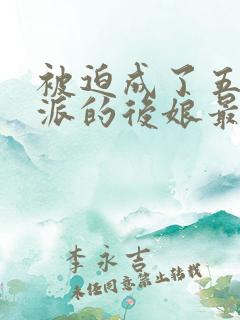 被迫成了五
派的後娘最
李永吉
未任同意禁止转载